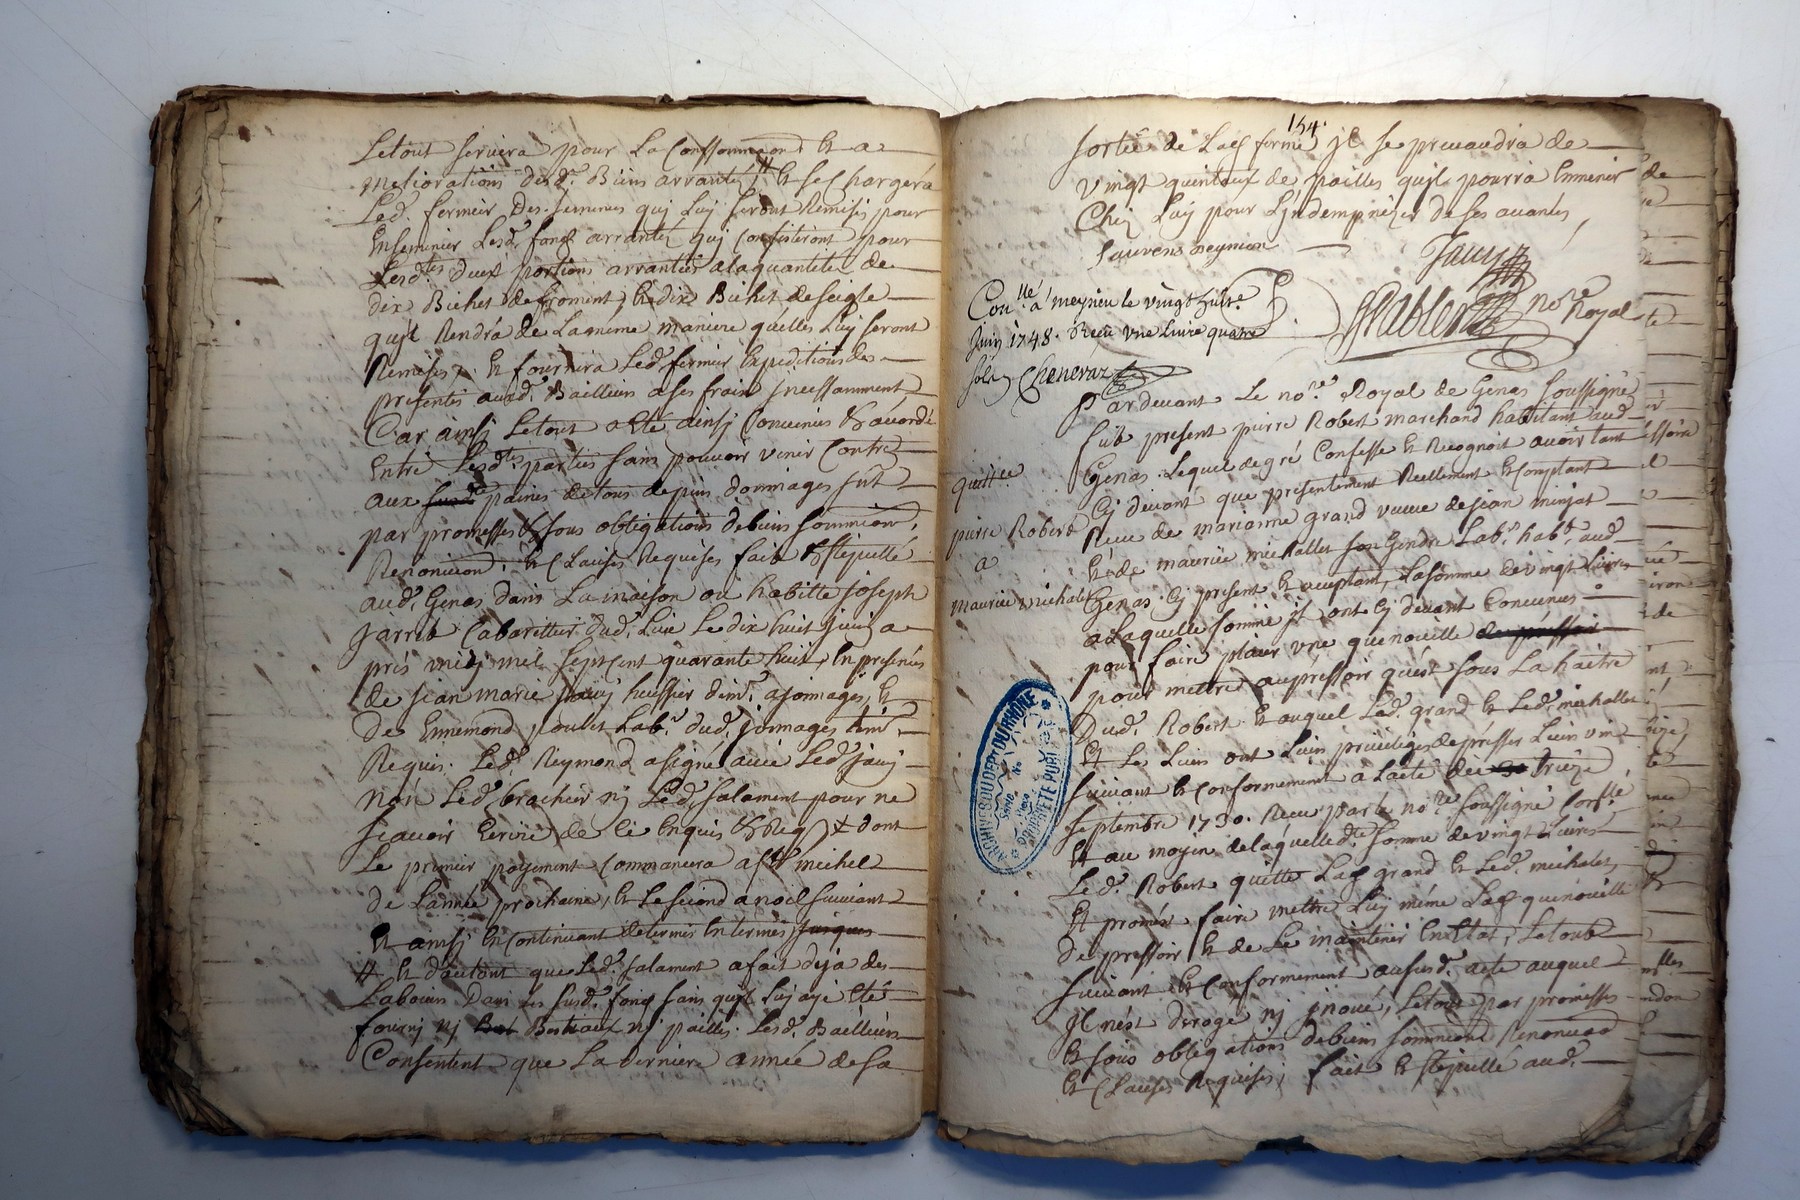 Letout servira pour La Conssommaon Et a
meliorations desd. Biens arrantés # Et se Chargera
Led. fermier Des semences qui Luy seront Remises pour
Ensemincer Lesd. fonds arrantés qui Consisteront pour
Lesd.tes deux portions arrantées alaquantité de
dix Bichet defroment, Et dix Bichet deseigle
qu'jl Rendra de Lameme maniere qu'elles Luy seront
Remises, Et fournira Led. fermier Expeditions des
presentes auxd. Bailleurs ases frais jncessamment
Car ainsj Letout aeté ainsj Convenus & acordé
Entre Lesd.tes parties sans pouvoir venir Contre
aux paines detous depens dommages fait
par promesses & sous obligations debiens soumission,
Renonciaon, & Clauses Requises fait & stipullé
aud. Genas dans La maison ou habitte joseph
jarret Cabarettier dud. Lieu Le dix huit juin a
prés midy mil septcent quarante huit, En presences
de jean marie jauy huissier ajonnages, Et
De Ennemond poulet Lab.r dud. jonnages
Requis. Led. Reymond asigné avec Led. jauy
non Led. bracheir nj Led. salament pour ne
scavoir Ecrire de ce Enquis & Req. dont
Le premier payement Commancera a st michel
de Lannée prochaine, & Lesecond anoel suivant
Et ainsj En Continuant determes Entermes jusques
# Et dautant que Led. salament afait deja des
Labours Dans Les susd. fonds sans qu'jl luj aye Eté
fournj nj Bestiaux nj pailles. Lesd. Bailleurs
Consentent que La derniere année desa
154.
sortie de Lad. ferme jl se prevaudra de
vingt quintaux de pailles qu'jl pourra Emmener
Chez Luy pour L'jndempnizer de ses avances,
Jauy
Con.llé a meyzieu le vingt huit.e
juin 1748. Reçu une Livre quatre
sols Cheneraz
No.re Royal
Pardevant Le no.re Royal de Genas soussigné
fut present pierre Robert marchand habitant aud.
Genas. Lequel degré Confesse & Recognoit avoir tant
Cj devant que presentement Reellement & Comptant
Receu de marianne grand veuve dejean minjat
Et de maurice michallet son Gendre Lab.r hab.t aud.
Genas, Cj present & acceptant, Lasomme devingt Livres
a Laquelle somme jl ont Cj devant Convenus
pour faire placer une quenouille
pour mettre aupressoir qu'est sous La haitre
Dud. Robert & auquel Lad. grand & Led. michallet
Et Le Leurs ont Leurs privileges depresser Leur vin
suivant & Conformement a Lacte du treize
septembre 1730. Receu par le no.re soussigné
Et au moyen delaquelled.te somme devingt Livres
Led. Robert quitte Lad. grand & Led. michalet
Et promet faire mettre Luy même Lad. quenouille
de pressoir Et de Le maintenir En Etat, Letout
suivant & Conformement aususd. acte auquel
jl n'est deroge nj jnové, Letout par promesses
Et sous obligations debiens soumission Renonciaon
Et Clauses Requises, fait & stipullé aud.
quitt.ce
pierre Robert
a
maurice michalet
ARCHIVES OU DEPT DU RHONE
PROPRIETE PUBL